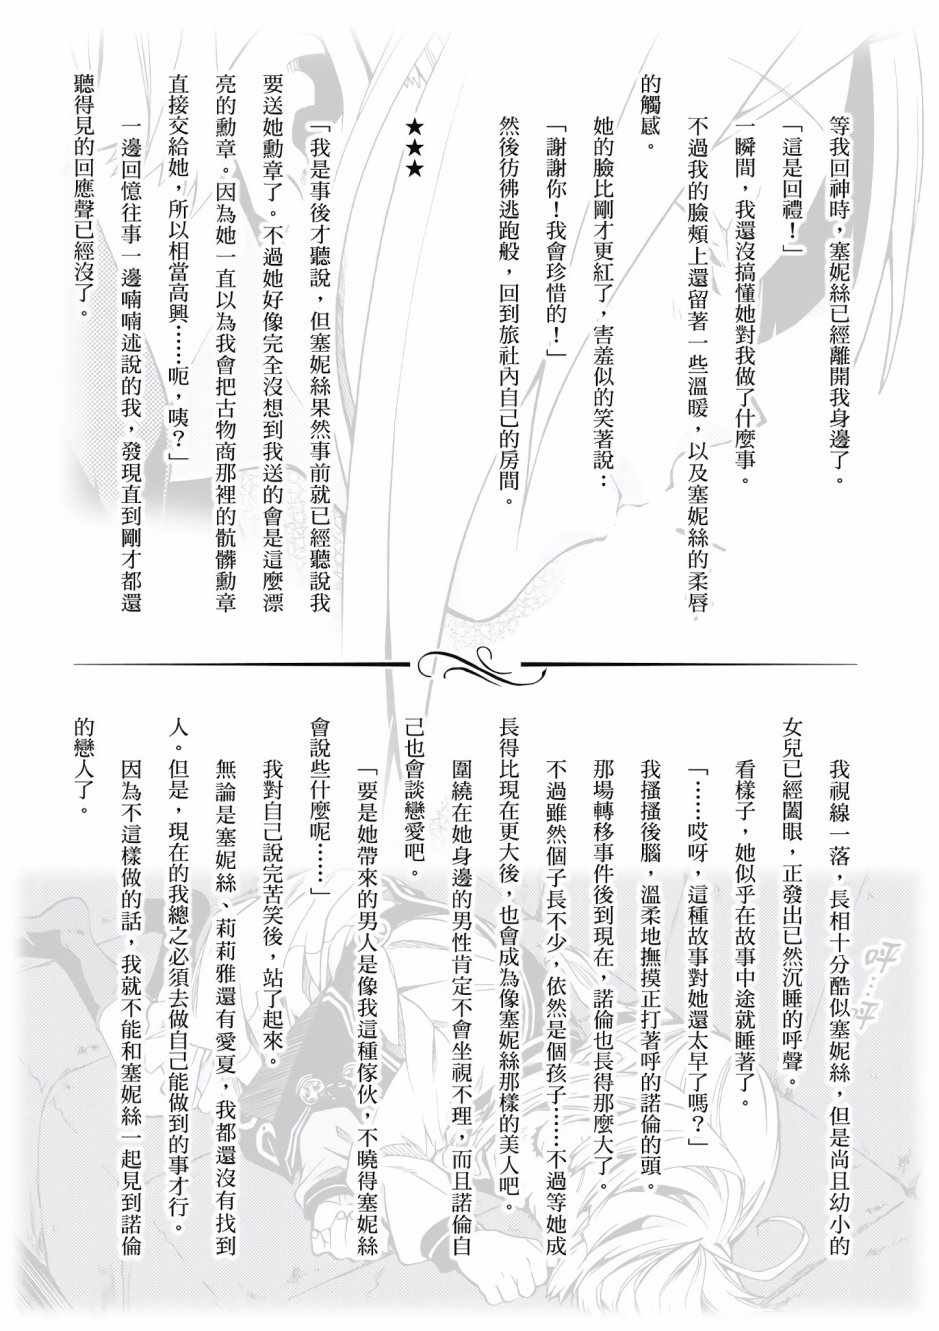 等我回神時，塞妮絲已經離開我身邊了。
「這是回禮！」
一瞬間，我還沒搞懂她對我做了什麼事。
不過我的臉頰上還留著一些溫暖，以及塞妮絲的柔唇
的觸感。
她的臉比剛才更紅了，害羞似的笑著說：
「謝謝你！我會珍惜的！」
然後彷彿逃跑般，回到旅社內自己的房間。
★★★
「我是事後才聽說，但塞妮絲果然事前就已經聽說我
要送她勳章了。不過她好像完全沒想到我送的會是這麼漂
亮的勳章。因為她一直以為我會把古物商那裡的骯髒勳章
直接交給她，所以相當高興……呃，咦？」
一邊回憶往事一邊喃喃述說的我，發現直到剛才都還
聽得見的回應聲已經沒了。
我視線一落，長相十分酷似塞妮絲，但是尚且幼小的
女兒已經闔眼，正發出已然沉睡的呼聲。
看樣子，她似乎在故事中途就睡著了。
「……哎呀，這種故事對她還太早了嗎？」
我搔搔後腦，溫柔地撫摸正打著呼的諾倫的頭。
那場轉移事件後到現在，諾倫也長得那麼大了。
不過雖然個子長不少，依然是個孩子……不過等她成
長得比現在更大後，也會成為像塞妮絲那樣的美人吧。
圍繞在她身邊的男性肯定不會坐視不理，而且諾倫自
己也會談戀愛吧。
「要是她帶來的男人是像我這種傢伙，不曉得塞妮絲
會說些什麼呢……」
我對自己說完苦笑後，站了起來。
無論是塞妮絲、莉莉雅還有愛夏，我都還沒有找到
人。但是，現在的我總之必須去做自己能做到的事才行。
因為不這樣做的話，我就不能和塞妮絲一起見到諾倫
的戀人了。